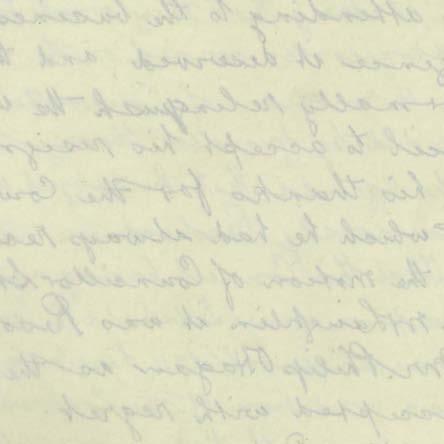 attending to the business
it deserved and
formally relinquish the
to accept his resign
his thanks for the Cou
which he had always
the motion of Councillor
McLoughlin it was Reso
Mr. Philip O'Hagan as the
accepted with regret.